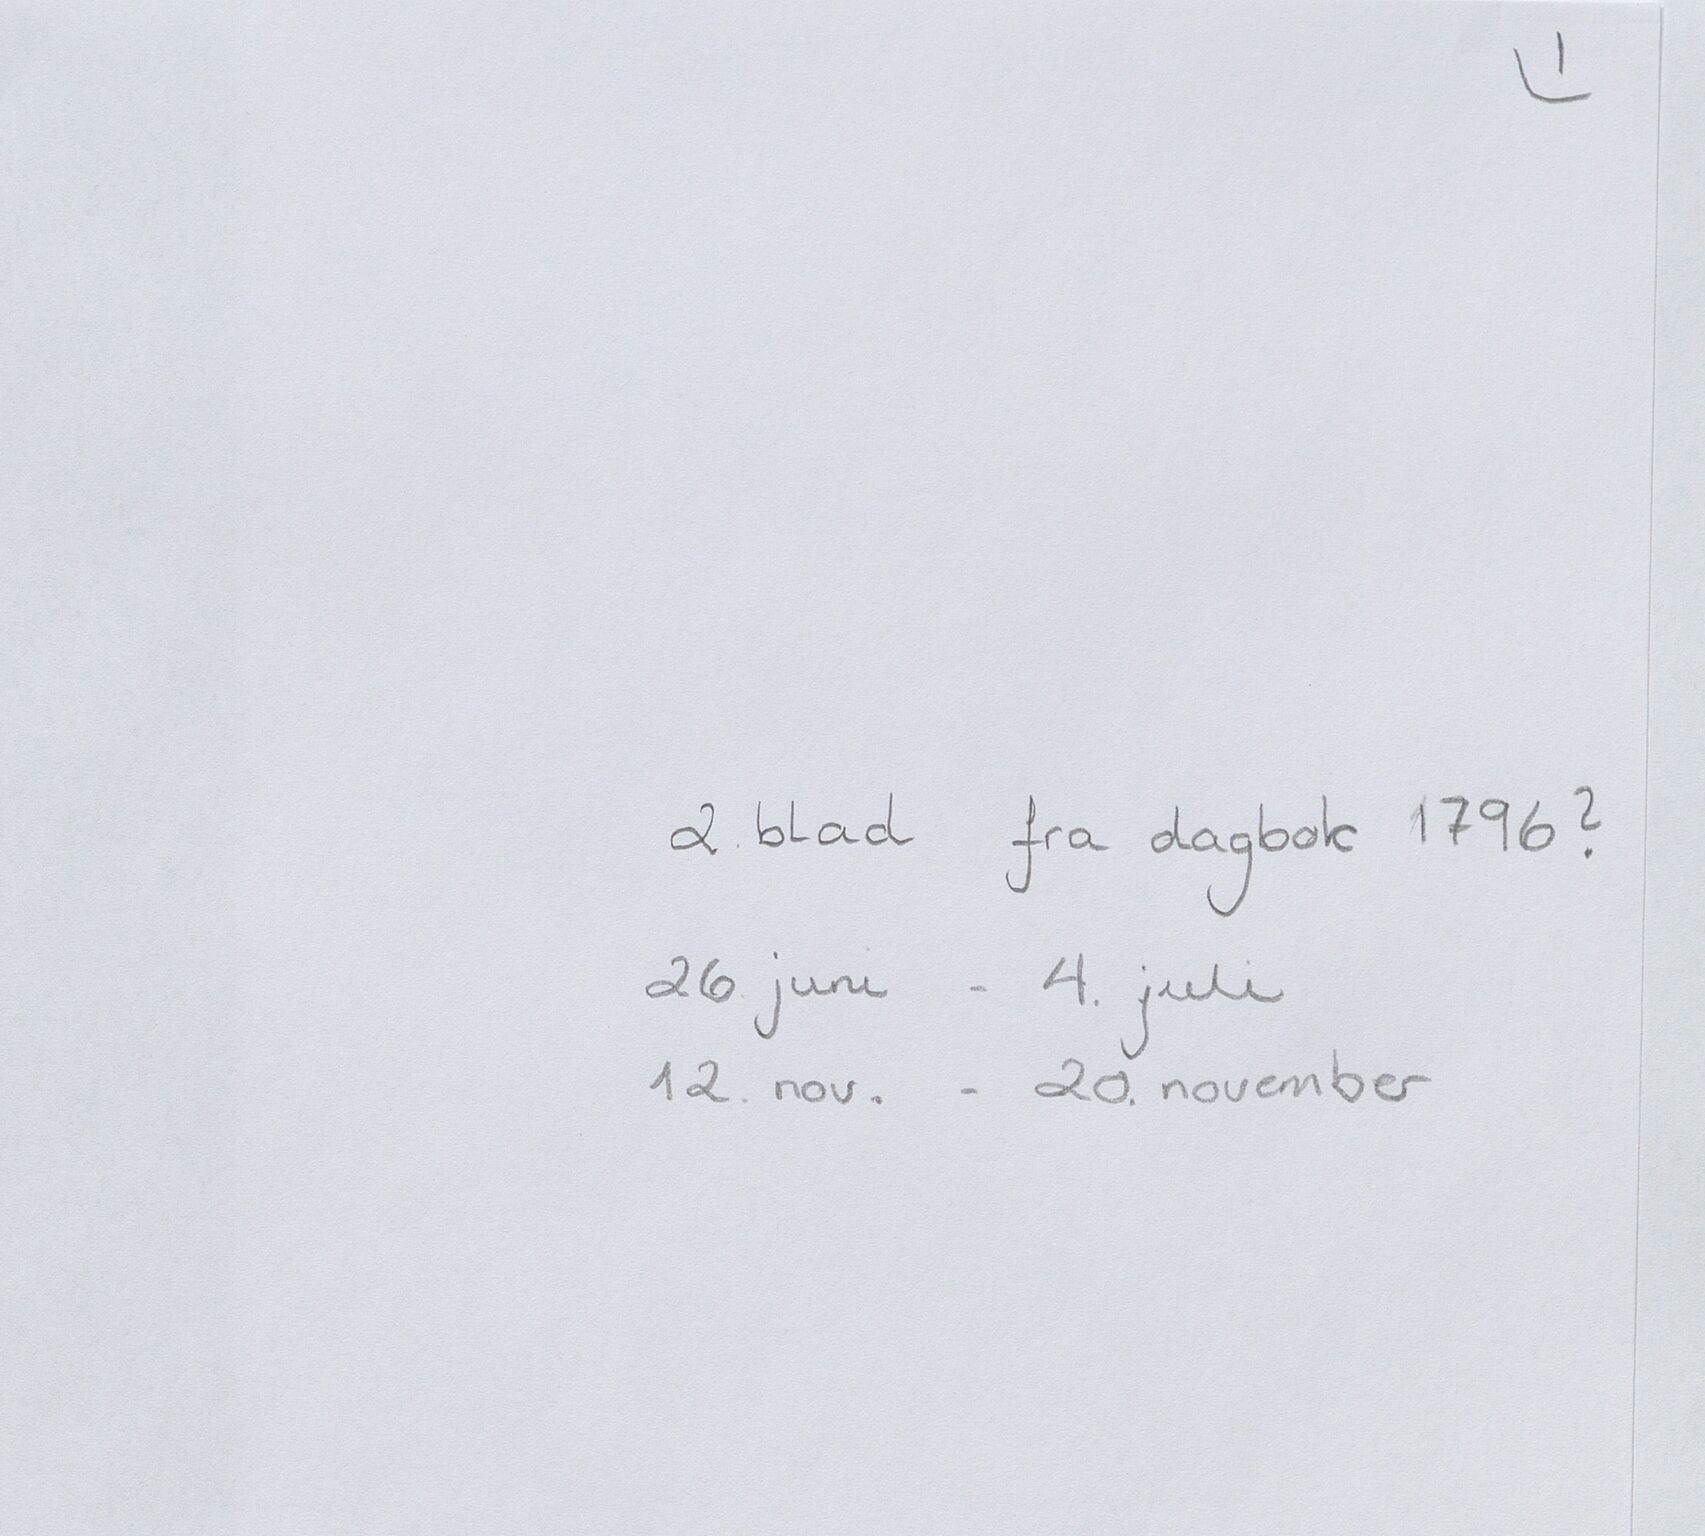 1
2. blad fra dagbok 1796?
26. juni - 4. juli
12. nov. - 20. november